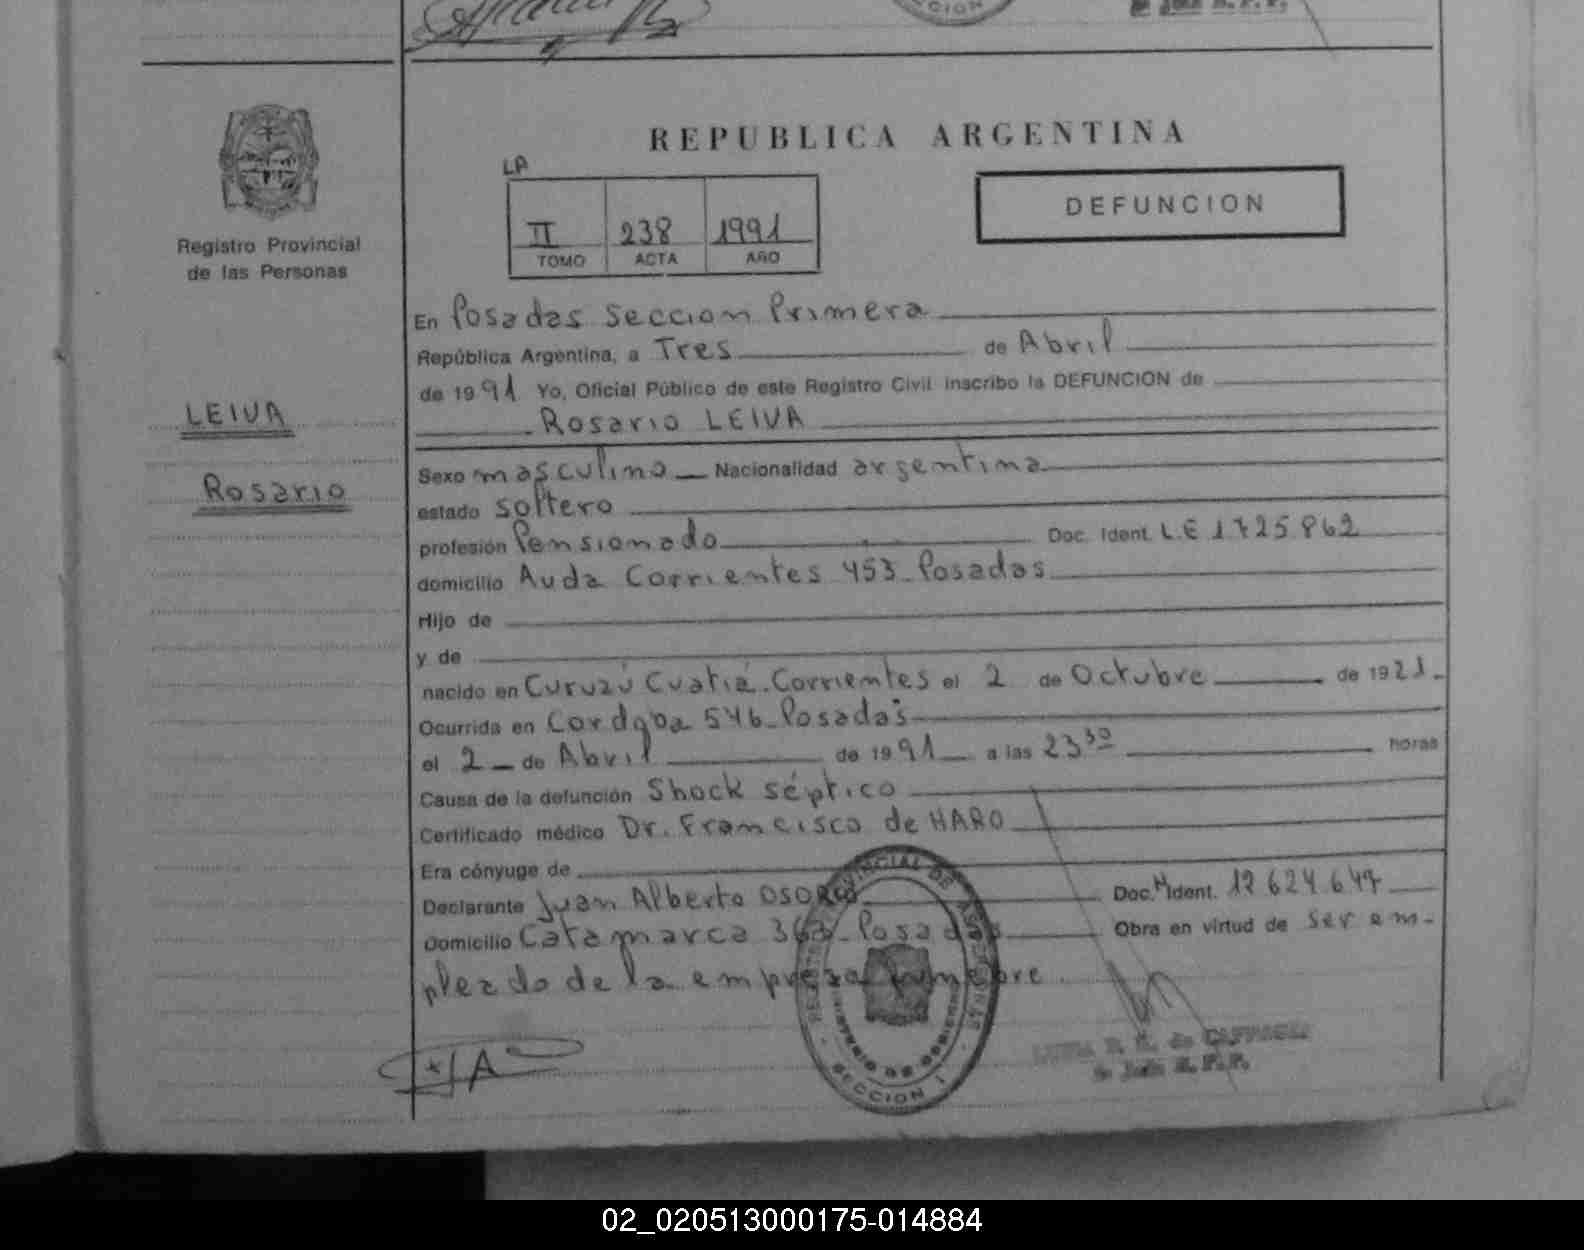 CCION
REPUBLICA ARGENTINA
LA
II 238 1991
TOMO ACTA AÑO
DEFUNCION
Registro Provincial
de las Personas
LEIVA
Rosario
En Posadas Seccion Primera
República Argentina, a Tres de Abril
de 1991 Yo, Oficial Público de este Registro Civil inscribo la DEFUNCION de
Rosario LEIVA
Sexo masculino Nacionalidad argentina
estado soltero
profesión Pensionado Doc. Ident. L.E 1725862
domicilio Avda Corrientes 453 - Posadas
Hijo de
y de
nacido en Curuzú Cuatiá - Corrientes el 2 de Octubre de 1921.
Ocurrida en Cordoba 546 - Posadas
el 2 de Abril de 1991 a las 23 30 horas
Causa de la defunción Shock séptico
Certificado médico Dr. Francisco de HARO
Era cónyuge de
Declarante Juan Alberto OSORIO Doc. Ident. 12 624 647
Domicilio Catamarca 363 - Posadas Obra en virtud de ser em-
pleado de la empresa funebre.
REGISTRO PROVINCIAL DE LAS PERSONAS
MINISTERIO DE GOBIERNO
SECCION 1
02_020513000175-014884